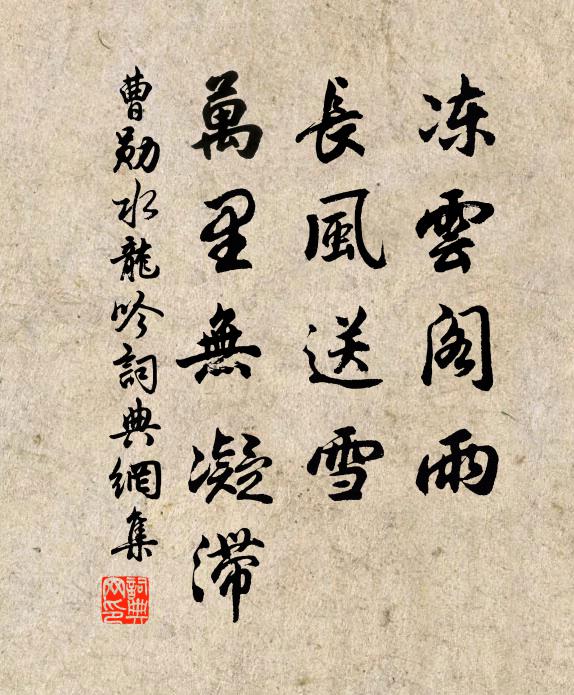 冻雲阁雨
長風送雪
萬里無凝滞
曹勋水龍吟詞典網集
詞典网印